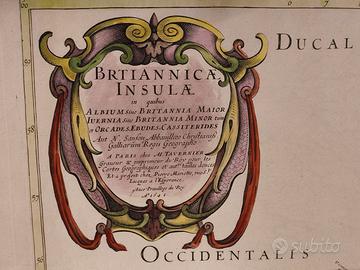 DUCAL
BRTIANNICÆ
INSULÆ
in quibus
ALBIUM Siue BRITANNIA MAIOR
IUERNIA Siue BRITANNIA MINOR tum
et ORCADES, EBUDES, CASSITERIDES
Aut N. Sanson Abbavillæo Christianiss
Galliarum Regis Geographo
A PARIS chez M. TAVERNIER
Graueur & imprimeur du Roy pour les
Cartes Geographiques et autres tailles douces
Et a present chez Pierre Mariette, rue S.
Iacques a l'Esperance
auec Privilege du Roy
1641
OCCIDENTALIS
subito
56